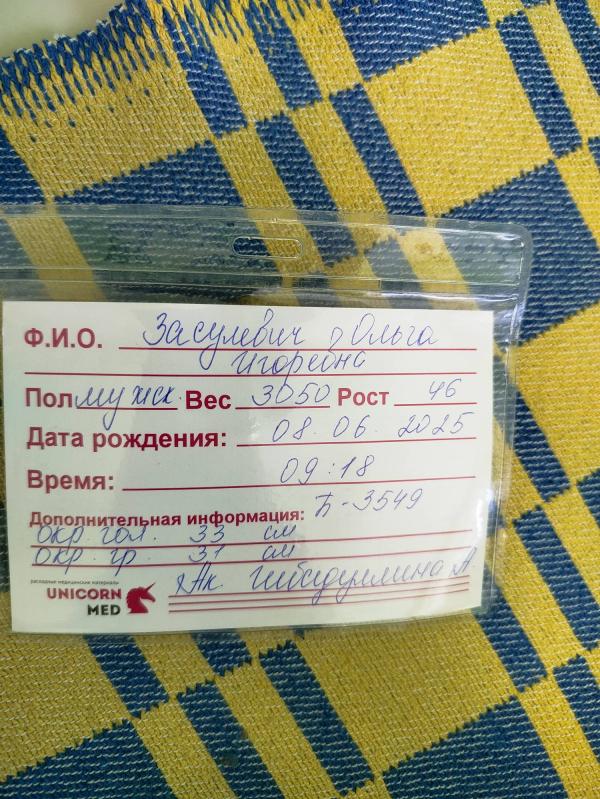 Ф.И.О. Засулевич Ольга
Игоревна
Пол мужск. Вес 3050 Рост 46
Дата рождения: 08.06.2025
Время: 09:18
Дополнительная информация: Б-3549
окр. гол. 33 см
окр. гр. 31 см
расходные медицинские материалы
UNICORN
MED
Ак Гибадуллина А